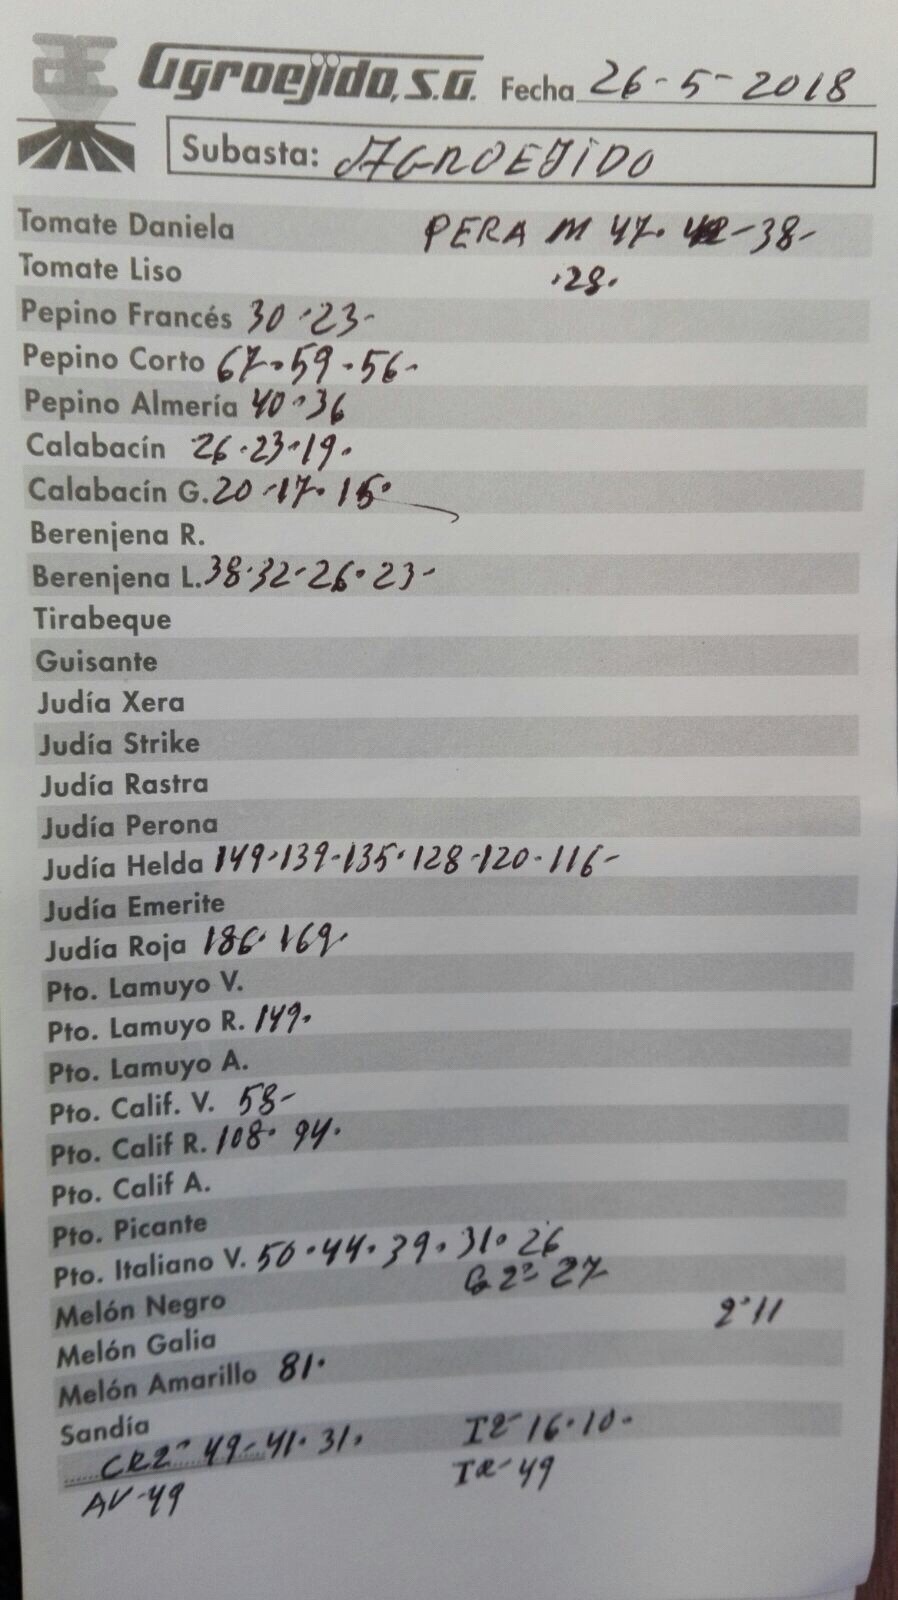 Agroejido, S.A. Fecha 26-5-2018
Subasta: AGROEJIDO
Tomate Daniela PERA M 47. 42-38-
Tomate Liso .28.
Pepino Francés 30.23-
Pepino Corto 67.59.56-
Pepino Almería 40.36
Calabacín 26.23.19.
Calabacín G. 20.17.15.
Berenjena R.
Berenjena L. 38.32-26.23-
Tirabeque
Guisante
Judía Xera
Judía Strike
Judía Rastra
Judía Perona
Judía Helda 149-139-135.128-120-116-
Judía Emerite
Judía Roja 186.169.
Pto. Lamuyo V.
Pto. Lamuyo R. 149.
Pto. Lamuyo A.
Pto. Calif. V. 58-
Pto. Calif R. 108. 94.
Pto. Calif A.
Pto. Picante
Pto. Italiano V. 50.44.39.31.26
G 2ª 27
Melón Negro
2ª 11
Melón Galia
Melón Amarillo 81.
Sandía
CR2ª 49-41.31. I2ª 16.10-
AV-49 IR-49